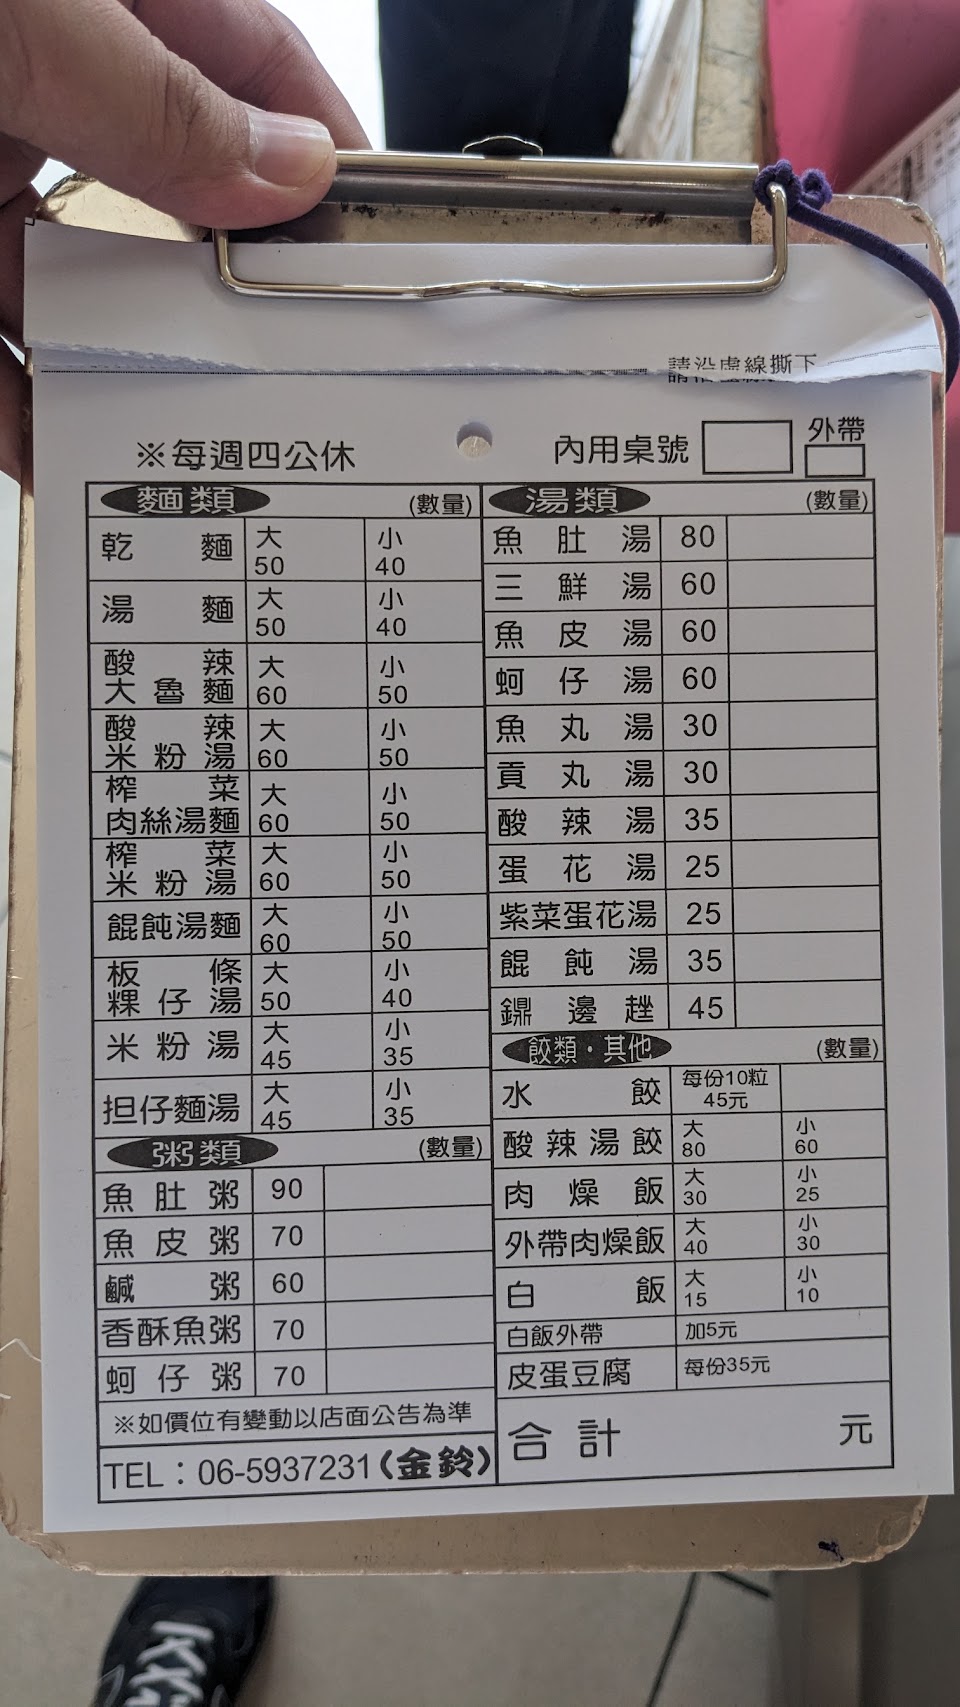 請沿虛線撕下
※每週四公休
內用桌號
外帶
麵類 (數量)
乾麵 大50 小40
湯麵 大50 小40
酸辣大魯麵 大60 小50
酸辣米粉湯 大60 小50
榨菜肉絲湯麵 大60 小50
榨菜米粉湯 大60 小50
餛飩湯麵 大60 小50
板條粿仔湯 大50 小40
米粉湯 大45 小35
担仔麵湯 大45 小35
粥類 (數量)
魚肚粥 90
魚皮粥 70
鹹粥 60
香酥魚粥 70
蚵仔粥 70
※如價位有變動以店面公告為準
TEL：06-5937231(金鈴)
湯類 (數量)
魚肚湯 80
三鮮湯 60
魚皮湯 60
蚵仔湯 60
魚丸湯 30
貢丸湯 30
酸辣湯 35
蛋花湯 25
紫菜蛋花湯 25
餛飩湯 35
鼎邊趖 45
餃類·其他 (數量)
水餃 每份10粒45元
酸辣湯餃 大80 小60
肉燥飯 大30 小25
外帶肉燥飯 大40 小30
白飯 大15 小10
白飯外帶 加5元
皮蛋豆腐 每份35元
合計 元